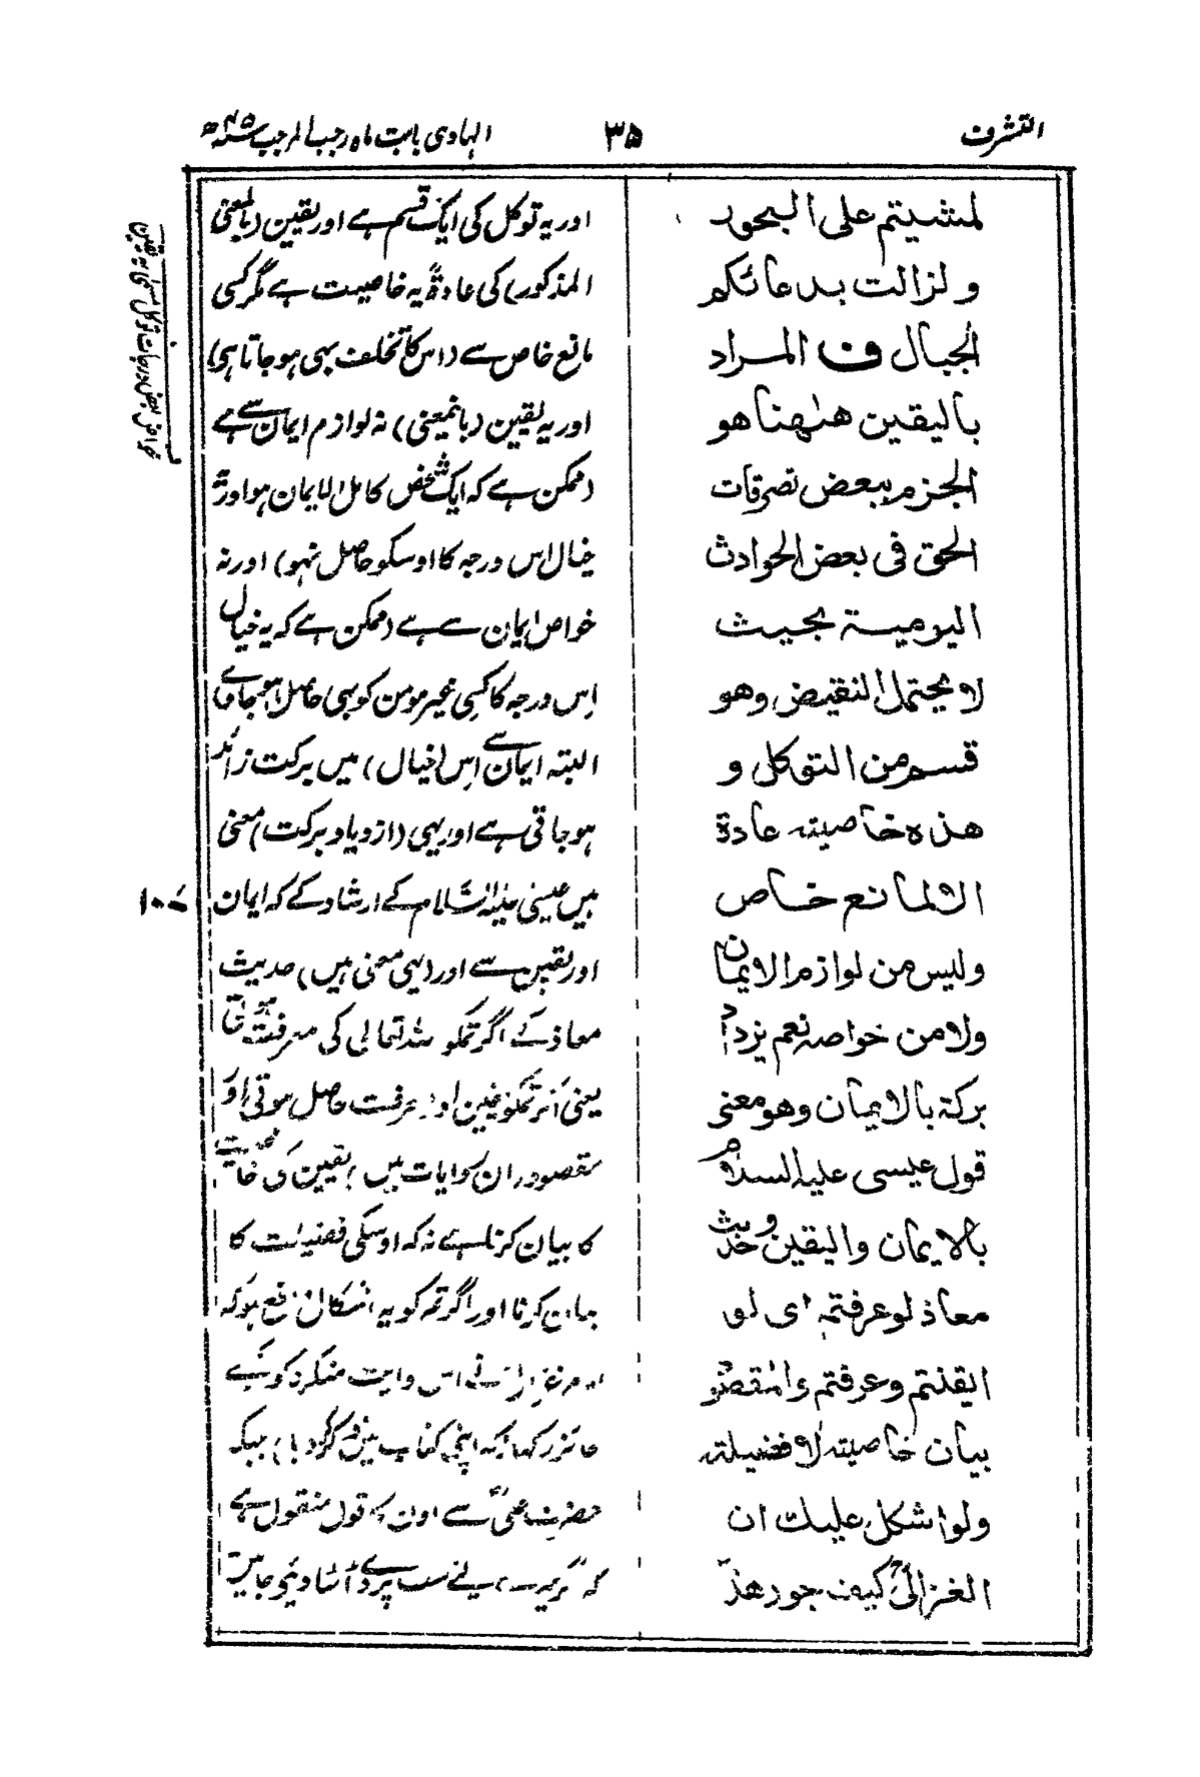 التشرف
۳۵
الہادی بابت ماہ رجب المرجب
لمشیتم علی البحور
ولزالت بدعائکم
الجبال ف المراد
بالیقین ھٰھنا ھو
الجزم ببعض تصرفات
الحق فی بعض الحوادث
الیومیۃ بحیث
لا یحتمل النقیض وھو
قسم من التوکل و
ھذہ خاصیتہ عادۃ
الا لمانع خاص
ولیس من لوازم الایمان
ولا من خواصہ نعم یزداد
برکۃ بالایمان وھو معنی
قول عیسی علیہ السلام
بالایمان والیقین وحدیث
معاذ لو عرفتم ای لو
ایقنتم وعرفتم والمقصود
بیان خاصیتہ لا فضیلتہ
ولو اشکل علیک ان
الغزالیؒ کیف جوز ھذ
اور یہ توکل کی ایک قسم ہے اور یقین (بالمعنی
المذکور) کی عادۃً یہ خاصیت ہے مگر کسی
مانع خاص سے (اس کا تخلف بھی ہو جاتا ہی)
اور یہ یقین (بایمعنی) نہ لوازم ایمان سے ہے
(ممکن ہے کہ ایک شخص کامل الایمان ہو اور
خیال اس درجہ کا اوسکو حاصل نہو) اور نہ
خواص ایمان سے ہے (ممکن ہے کہ یہ خیال
اس درجہ کا کسی غیر مومن کو بھی حاصل ہو جاوے)
البتہ ایمان سے اس (خیال) میں برکت زائد
ہو جاتی ہے اور یہی (ازدیاد برکت) معنی
ہیں عیسیٰ علیہ السلام کے ارشاد کے کہ ایمان
اور یقین سے اور (یہی معنی ہیں) حدیث
معاذ کے اگر تمکو اللہ تعالی کی معرفت ہوتی
یعنی اگر تمکو یقین اور معرفت حاصل ہوتی اور
مقصود ان روایات میں یقین کی خاصیت
کا بیان کرنا ہے نہ کہ اوسکی فضیلت کا
بیان کرنا اور اگر تم کو یہ اشکال واقع ہو کہ
اس روایت منکرہ کو
جائز رکھا کہ اپنی کتاب میں ذکر کر دیا) جبکہ
حضرت سے اون کا قول منقول ہے
کہ